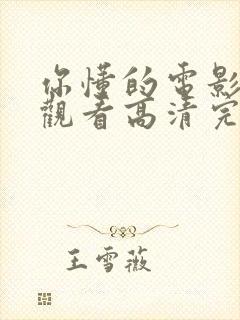 你懂的電影
觀看高清完
王雪薇